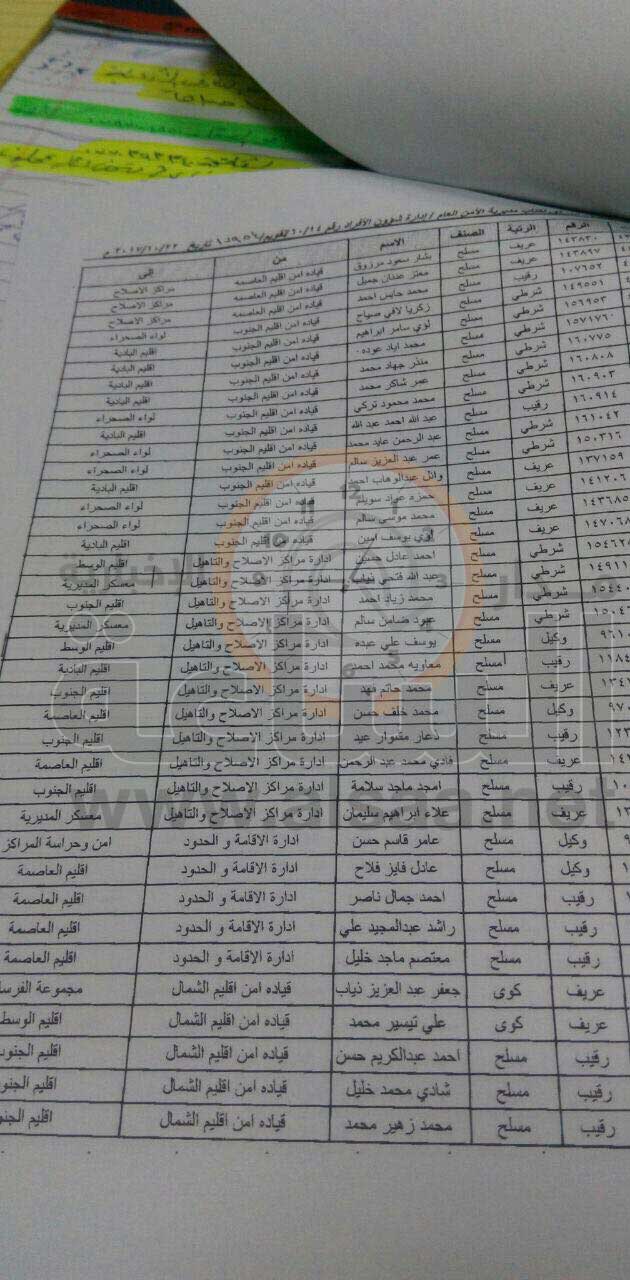 مديرية الأمن العام / إدارة شؤون الأفراد رقم
الرقم الرتبة الصنف الاسم من إلى
١٤٣٨٣٠ عريف مسلح بشار سعود مرزوق قياده امن اقليم العاصمه مراكز الاصلاح
١٤٣٨٩٧ عريف مسلح معتز عدنان جميل قياده امن اقليم العاصمه مراكز الاصلاح
١٠٧٦٥٢ رقيب مسلح محمد حابس احمد قياده امن اقليم العاصمه مراكز الاصلاح
١٤٩٥٥١ شرطي مسلح زكريا لافي صباح قياده امن اقليم الجنوب لواء الصحراء
١٥٦٩٥٣ شرطي مسلح لوي سامر ابراهيم قياده امن اقليم الجنوب اقليم البادية
١٥٧١٧٦٠ شرطي مسلح محمد اياد عوده قياده امن اقليم الجنوب اقليم البادية
١٦٠٧٧٥ شرطي مسلح منذر جهاد محمد قياده امن اقليم الجنوب اقليم البادية
١٦٠٨٠٨ شرطي مسلح عمر شاكر محمد قياده امن اقليم الجنوب اقليم البادية
١٦٠٩٠٣ شرطي مسلح محمد محمود تركي قياده امن اقليم الجنوب لواء الصحراء
١٦٠٩١٤ رقيب مسلح عبد الله احمد عبد الله قياده امن اقليم الجنوب اقليم البادية
١٦١٠٤٢ شرطي مسلح عبد الرحمن عايد محمد قياده امن اقليم الجنوب لواء الصحراء
١٥٠٣١٦ شرطي مسلح عمر عبد العزيز سالم قياده امن اقليم الجنوب لواء الصحراء
١٣٧١٥٩ عريف مسلح وائل عبدالوهاب احمد قياده امن اقليم الجنوب اقليم البادية
١٤١٢٠٦ عريف مسلح حمزه عواد سويلم قياده امن اقليم الجنوب لواء الصحراء
١٤٣٦٨٥ عريف مسلح محمد موسى سالم قياده امن اقليم الجنوب لواء الصحراء
١٤٧٠٦٨ عريف مسلح لوي يوسف امين قياده امن اقليم الجنوب اقليم البادية
١٥٤٦٢٨ شرطي مسلح احمد عادل حسن ادارة مراكز الاصلاح والتاهيل اقليم الوسط
١٤٩١١ شرطي مسلح عبد الله فتحي ذياب ادارة مراكز الاصلاح والتاهيل معسكر المديرية
١٥٤٤٠ شرطي مسلح محمد زياد احمد ادارة مراكز الاصلاح والتاهيل اقليم الجنوب
١٥٠٤٢ شرطي مسلح عبود ضامن سالم ادارة مراكز الاصلاح والتاهيل معسكر المديرية
٩٦١٠ وكيل مسلح يوسف علي عبده ادارة مراكز الاصلاح والتاهيل اقليم الوسط
١١٨٤ رقيب مسلح معاويه محمد احمد ادارة مراكز الاصلاح والتاهيل اقليم البادية
١٣٤ عريف مسلح محمد حاتم فهد ادارة مراكز الاصلاح والتاهيل اقليم الجنوب
٩٧٠ وكيل مسلح محمد خلف حسن ادارة مراكز الاصلاح والتاهيل اقليم العاصمة
١٢٣ رقيب مسلح ذعار مشوار عيد ادارة مراكز الاصلاح والتاهيل اقليم الجنوب
١٤ عريف مسلح فادي محمد عبد الرحمن ادارة مراكز الاصلاح والتاهيل اقليم العاصمة
١٠ رقيب مسلح امجد ماجد سلامة ادارة مراكز الاصلاح والتاهيل اقليم الجنوب
١٣ عريف مسلح علاء ابراهيم سليمان ادارة مراكز الاصلاح والتاهيل معسكر المديرية
٩ وكيل مسلح عامر قاسم حسن ادارة الاقامة و الحدود امن وحراسة المراكز
وكيل مسلح عادل فايز فلاح ادارة الاقامة و الحدود اقليم العاصمة
رقيب مسلح احمد جمال ناصر ادارة الاقامة و الحدود اقليم العاصمة
رقيب مسلح راشد عبدالمجيد علي ادارة الاقامة و الحدود اقليم العاصمة
رقيب مسلح معتصم ماجد خليل ادارة الاقامة و الحدود اقليم العاصمة
عريف كوى جعفر عبد العزيز ذياب قياده امن اقليم الشمال مجموعة الفرسا
عريف كوى علي تيسير محمد قياده امن اقليم الشمال اقليم الوسط
رقيب مسلح احمد عبدالكريم حسن قياده امن اقليم الشمال اقليم الجنوب
رقيب مسلح شادي محمد خليل قياده امن اقليم الشمال اقليم الجنو
رقيب مسلح محمد زهير محمد قياده امن اقليم الشمال اقليم الجنو
www.alsaa.net